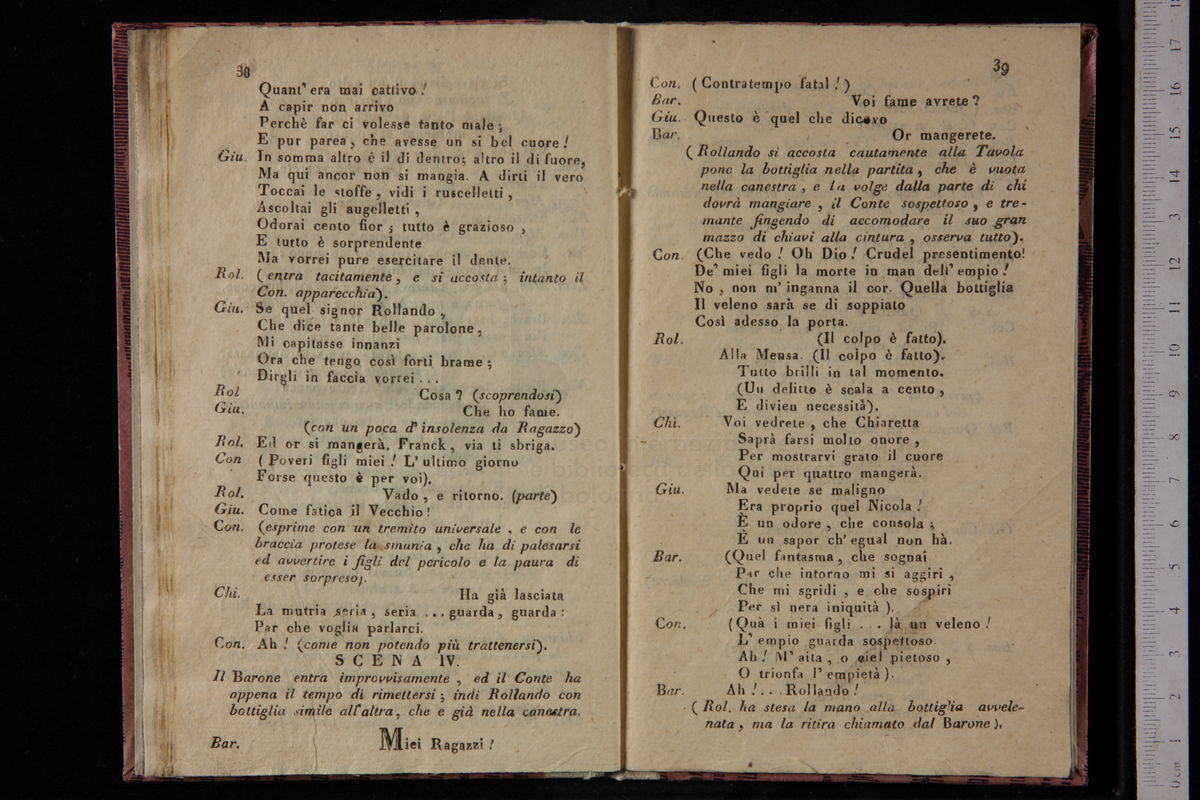 38
Quant' era mai cattivo!
A capir non arrivo
Perchè far ci volesse tanto male;
E pur parea, che avesse un sì bel cuore!
Giu. In somma altro è il di dentro; altro il di fuore,
Ma qui ancor non si mangia. A dirti il vero
Toccai le stoffe, vidi i ruscelletti,
Ascoltai gli augelletti,
Odorai cento fior; tutto è grazioso,
E tutto è sorprendente
Ma vorrei pure esercitare il dente.
Rol. (entra tacitamente, e si accosta; intanto il
Con. apparecchia).
Giu. Se quel signor Rollando,
Che dice tante belle parolone,
Mi capitasse innanzi
Ora che tengo così forti brame;
Dirgli in faccia vorrei...
Rol Cosa? (scoprendosi)
Giu. Che ho fame.
(con un poca d' insolenza da Ragazzo)
Rol. Ed or si mangerà. Franck, via ti sbriga.
Con (Poveri figli miei! L' ultimo giorno
Forse questo è per voi).
Rol. Vado, e ritorno. (parte)
Giu. Come fatica il Vecchio!
Con. (esprime con un tremito universale, e con le
braccia protese la smania, che ha di palesarsi
ed avvertire i figli del pericolo e la paura di
esser sorpreso).
Chi. Ha già lasciata
La mutria seria, seria... guarda, guarda:
Par che voglia parlarci.
Con. Ah! (come non potendo più trattenersi).
SCENA IV.
Il Barone entra improvvisamente, ed il Conte ha
appena il tempo di rimettersi; indi Rollando con
bottiglia simile all'altra, che e già nella canestra.
Bar. Miei Ragazzi!
39
Con. (Contratempo fatal!)
Bar. Voi fame avrete?
Giu. Questo è quel che dicevo
Bar. Or mangerete.
(Rollando si accosta cautamente alla Tavola
pone la bottiglia nella partita, che è vuota
nella canestra, e la volge dalla parte di chi
dovrà mangiare, il Conte sospettoso, e tre-
mante fingendo di accomodare il suo gran
mazzo di chiavi alla cintura, osserva tutto).
Con. (Che vedo! Oh Dio! Crudel presentimento!
De' miei figli la morte in man dell' empio!
No, non m' inganna il cor. Quella bottiglia
Il veleno sarà se di soppiato
Così adesso la porta.
Rol. (Il colpo è fatto).
Alla Mensa. (Il colpo è fatto).
Tutto brilli in tal momento.
(Un delitto è scala a cento,
E divien necessità).
Chi. Voi vedrete, che Chiaretta
Saprà farsi molto onore,
Per mostrarvi grato il cuore
Qui per quattro mangerà.
Giu. Ma vedete se maligno
Era proprio quel Nicola!
È un odore, che consola;
È un sapor ch' egual non hà.
Bar. (Quel fantasma, che sognai
Par che intorno mi si aggiri,
Che mi sgridi, e che sospiri
Per sì nera iniquità).
Con. (Quà i miei figli... là un veleno!
L' empio guarda sospettoso.
Ah! M' aita, o ciel pietoso,
O trionfa l' empietà).
Bar. Ah!... Rollando!
(Rol. ha stesa la mano alla bottiglia avvele-
nata, ma la ritira chiamato dal Barone).